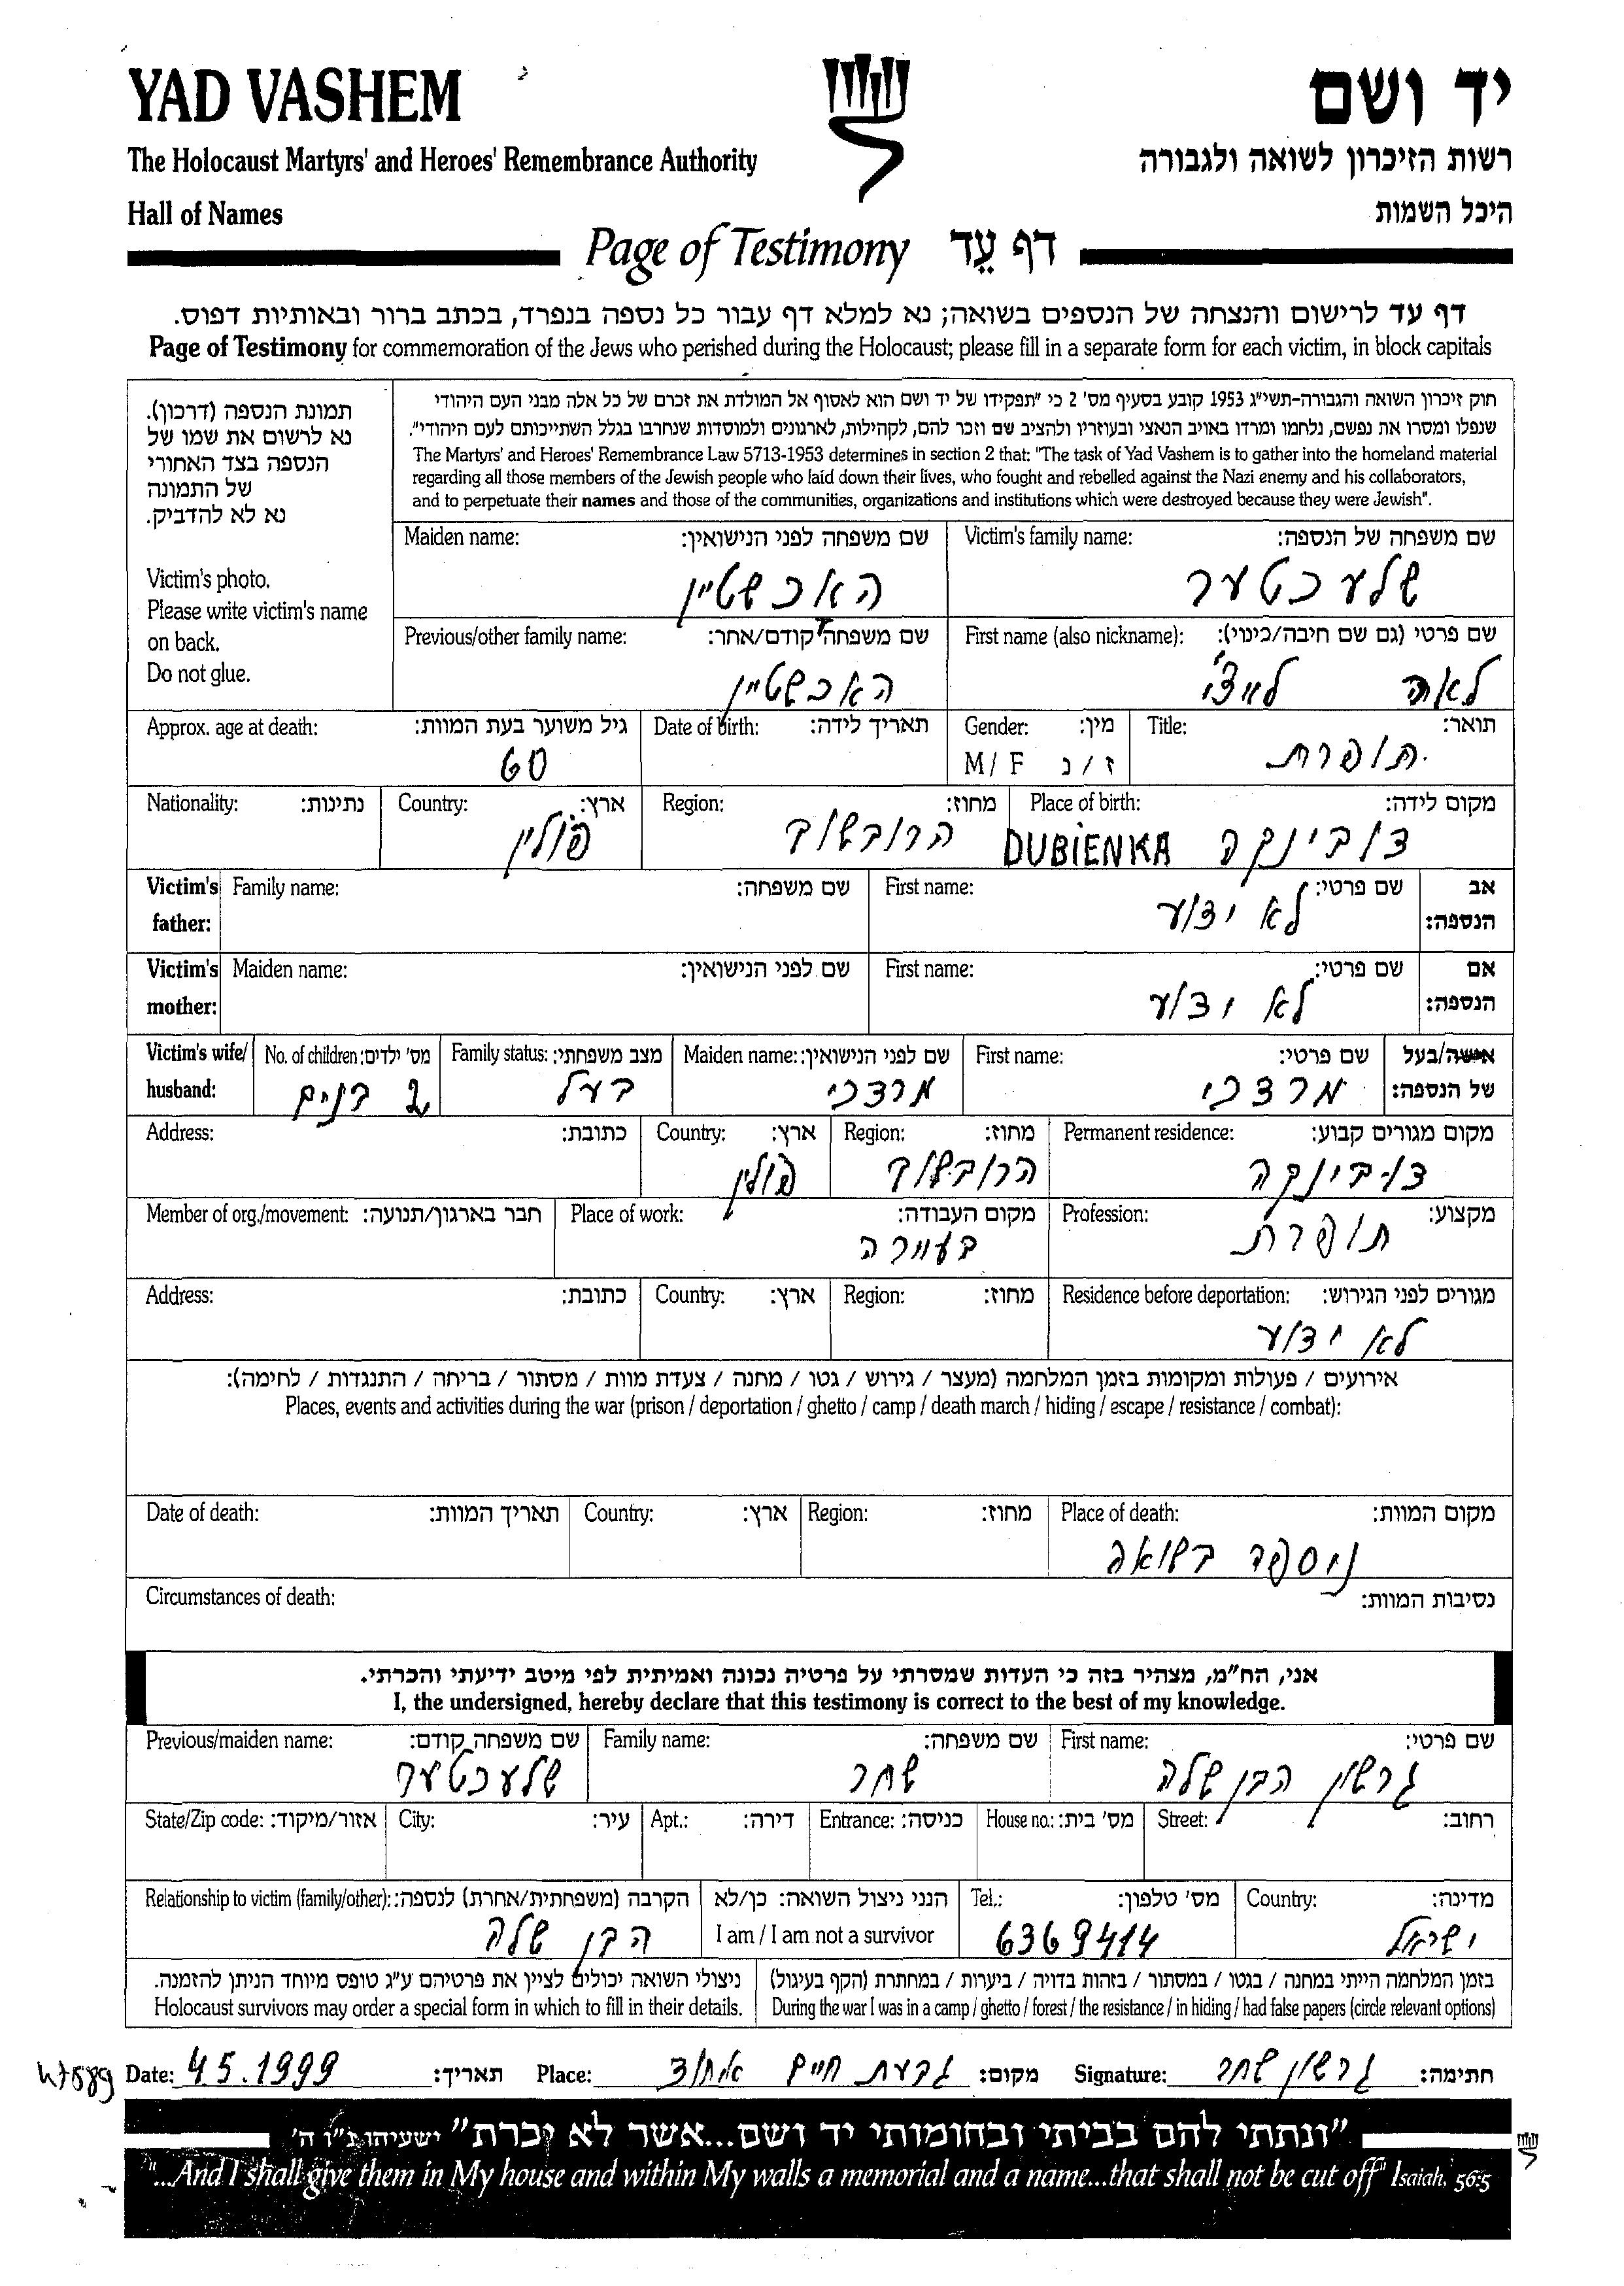 YAD VASHEM
יד ושם
The Holocaust Martyrs' and Heroes' Remembrance Authority
רשות הזיכרון לשואה ולגבורה
Hall of Names
היכל השמות
Page of Testimony דף עֵד
דף עד לרישום והנצחה של הנספים בשואה; נא למלא דף עבור כל נספה בנפרד, בכתב ברור ובאותיות דפוס.
Page of Testimony for commemoration of the Jews who perished during the Holocaust; please fill in a separate form for each victim, in block capitals
תמונת הנספה (דרכון).
נא לרשום את שמו של
הנספה בצד האחורי
של התמונה
נא לא להדביק.
Victim's photo.
Please write victim's name
on back.
Do not glue.
חוק זיכרון השואה והגבורה-תשי"ג 1953 קובע בסעיף מס' 2 כי "תפקידו של יד ושם הוא לאסוף אל המולדת את זכרם של כל אלה מבני העם היהודי
שנפלו ומסרו את נפשם, נלחמו ומרדו באויב הנאצי ובעוזריו ולהציב שם וזכר להם, לקהילות, לארגונים ולמוסדות שנחרבו בגלל השתייכותם לעם היהודי".
The Martyrs' and Heroes' Remembrance Law 5713-1953 determines in section 2 that: "The task of Yad Vashem is to gather into the homeland material
regarding all those members of the Jewish people who laid down their lives, who fought and rebelled against the Nazi enemy and his collaborators,
and to perpetuate their names and those of the communities, organizations and institutions which were destroyed because they were Jewish".
Victim's family name: שם משפחה של הנספה:
שלעכטער
Maiden name: שם משפחה לפני הנישואין:
האכשטיין
First name (also nickname): שם פרטי (גם שם חיבה/כינוי):
לאה לייצ'י
Previous/other family name: שם משפחה קודם/אחר:
האכשטיין
Title: תואר:
תופרת
Gender: מין:
M / F ז / נ
Date of birth: תאריך לידה:
Approx. age at death: גיל משוער בעת המוות:
60
Place of birth: מקום לידה:
DUBIENKA דובינקה
Region: מחוז:
הרובשוב
Country: ארץ:
פולין
Nationality: נתינות:
Victim's father: אב הנספה:
First name: שם פרטי:
לא ידוע
Family name: שם משפחה:
Victim's mother: אם הנספה:
First name: שם פרטי:
לא ידוע
Maiden name: שם לפני הנישואין:
Victim's wife/ husband: אישה/בעל של הנספה:
First name: שם פרטי:
מרדכי
Maiden name: שם לפני הנישואין:
מרדכי
Family status: מצב משפחתי:
בעל
No. of children: מס' ילדים:
2 בנים
Permanent residence: מקום מגורים קבוע:
דובינקה
Region: מחוז:
הרובשוב
Country: ארץ:
פולין
Address: כתובת:
Profession: מקצוע:
תופרת
Place of work: מקום העבודה:
בעיירה
Member of org./movement: חבר בארגון/תנועה:
Residence before deportation: מגורים לפני הגירוש:
לא ידוע
Region: מחוז:
Country: ארץ:
Address: כתובת:
אירועים / פעולות ומקומות בזמן המלחמה (מעצר / גירוש / גטו / מחנה / צעדת מוות / מסתור / בריחה / התנגדות / לחימה):
Places, events and activities during the war (prison / deportation / ghetto / camp / death march / hiding / escape / resistance / combat):
Place of death: מקום המוות:
ניספה בשואה
Region: מחוז:
Country: ארץ:
Date of death: תאריך המוות:
Circumstances of death: נסיבות המוות:
אני, הח"מ, מצהיר בזה כי העדות שמסרתי על פרטיה נכונה ואמיתית לפי מיטב ידיעתי והכרתי.
I, the undersigned, hereby declare that this testimony is correct to the best of my knowledge.
First name: שם פרטי:
גרשון הבן שלה
Family name: שם משפחה:
שחר
Previous/maiden name: שם משפחה קודם:
שלעכטער
Street: רחוב:
House no.: מס' בית:
Entrance: כניסה:
Apt.: דירה:
City: עיר:
State/Zip code: אזור/מיקוד:
Country: מדינה:
ישראל
Tel.: מס' טלפון:
6369414
הנני ניצול השואה: כן/לא
I am / I am not a survivor
Relationship to victim (family/other): הקרבה (משפחתית/אחרת) לנספה:
הבן שלה
בזמן המלחמה הייתי במחנה / בגטו / במסתור / בזהות בדויה / ביערות / במחתרת (הקף בעיגול)
During the war I was in a camp / ghetto / forest / the resistance / in hiding / had false papers (circle relevant options)
ניצולי השואה יכולים לציין את פרטיהם ע"ג טופס מיוחד הניתן להזמנה.
Holocaust survivors may order a special form in which to fill in their details.
Date: 4.5.1999 תאריך: Place: גבעת חיים אחוד מקום: Signature: גרשון שחר חתימה:
"ונתתי להם בביתי ובחומותי יד ושם...אשר לא יכרת" ישעיהו נ"ו ה'
"...And I shall give them in My house and within My walls a memorial and a name...that shall not be cut off" Isaiah, 56:5